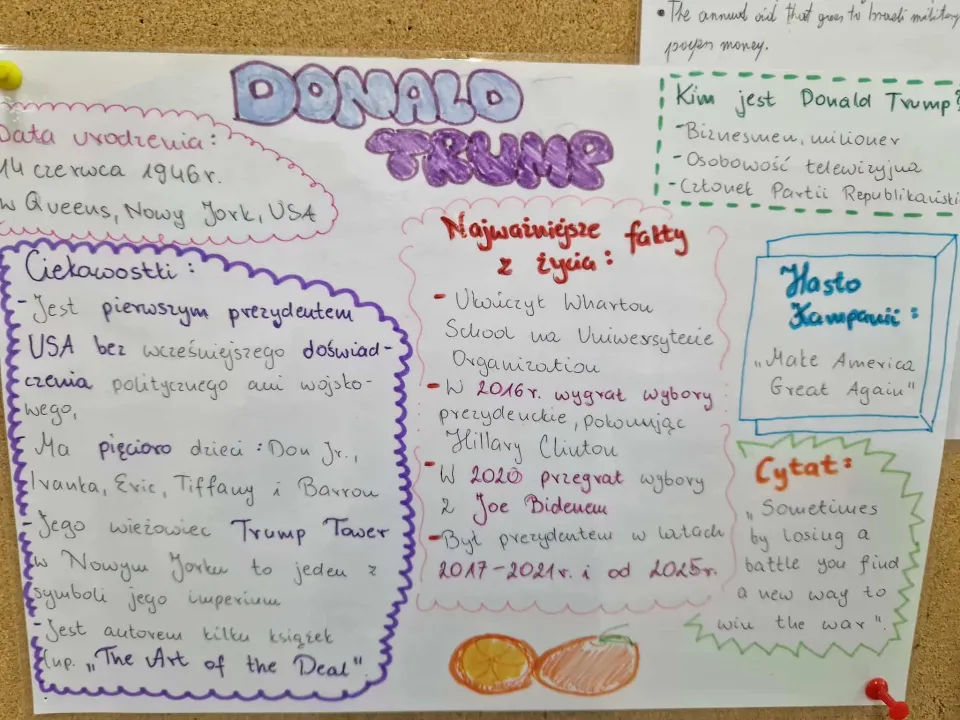 • The annual aid that goes to Israeli military
money.
DONALD
TRUMP
Data urodzenia:
14 czerwca 1946r.
w Queens, Nowy Jork, USA
Kim jest Donald Trump?
- Biznesmen, milioner
- Osobowość telewizyjna
- Członek Partii Republikański
Ciekawostki:
- Jest pierwszym prezydentem
USA bez wcześniejszego doświad-
czenia politycznego ani wojsko-
wego,
Ma pięcioro dzieci: Don Jr.,
Ivanka, Eric, Tiffany i Barron
- Jego wieżowiec Trump Tower
w Nowym Jorku to jeden z
symboli jego imperium
- Jest autorem kilku książek
(np. „The Art of the Deal"
Najważniejsze fakty
z życia:
- Ukończył Wharton
School na Uniwersytecie
Organization
- W 2016r. wygrał wybory
prezydenckie, pokonując
Hillary Clinton
- W 2020 przegrał wybory
z Joe Bidenem
- Był prezydentem w latach
2017-2021r. i od 2025r.
Hasło
Kampanii:
„Make America
Great Again"
Cytat:
„Sometimes
by losing a
battle you find
a new way to
win the war".